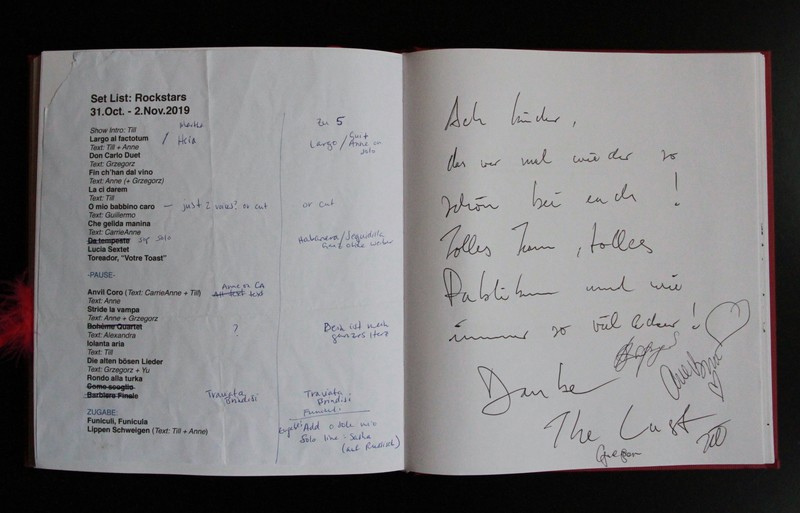 Set List: Rockstars
31.Oct. - 2.Nov.2019
Show Intro: Till
Largo al factotum / Heia
Text: Till + Anne
Don Carlo Duet
Text: Grzegorz
Fin ch'han dal vino
Text: Anne (+ Grzegorz)
La ci darem
Text: Till
O mio babbino caro — just 2 voices? or cut
Text: Guillermo
Che gelida manina
Text: CarrieAnne
Da tempeste solo
Lucia Sextet
Toreador, "Votre Toast"
-PAUSE-
Anvil Coro (Text: CarrieAnne + Till) Anne or CA
Text: Anne text
Stride la vampa
Text: Anne + Grzegorz
Bohème Quartet ?
Text: Alexandra
Iolanta aria
Text: Till
Die alten bösen Lieder
Text: Grzegorz + Yu
Rondo alla turka
Come scoglio
Barbiere Finale Traviata
Brindisi
ZUGABE:
Funiculi, Funicula
Lippen Schweigen (Text: Till + Anne)
Zu 5
Largo / Anne on
solo
or cut
Habanera / Seguidilla
Dein ist mein
ganzes Herz
Traviata
Brindisi
Funiculi
Add o sole mio
Solo line - Sasha
(auf Russisch)
Ach Kinder,
das war mal wieder so
schön bei euch!
Tolles Team, tolles
Publikum und wie
immer so viel Lecker!
Danke
The Cast
Till